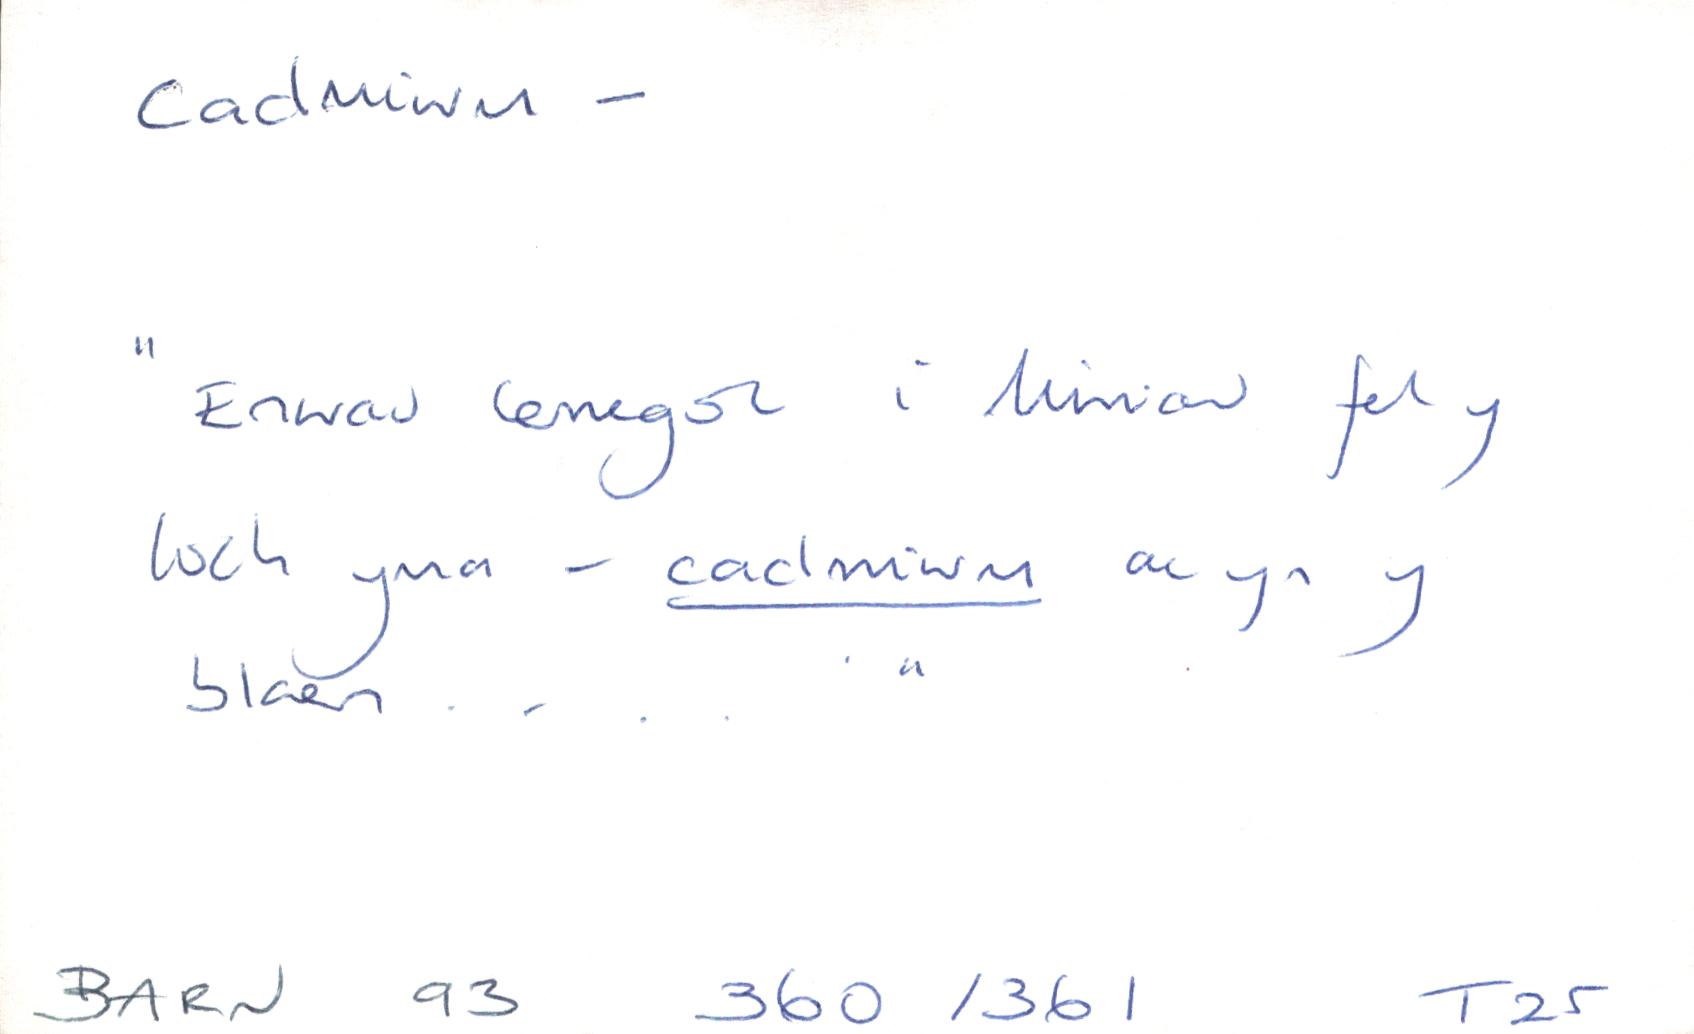 Cadmiwm -
"Enwau cemegol i lliwiau fel y
coch yna - cadmiwm ac yn y
blaen . . . . . "
BARN 93 360 /361 T25